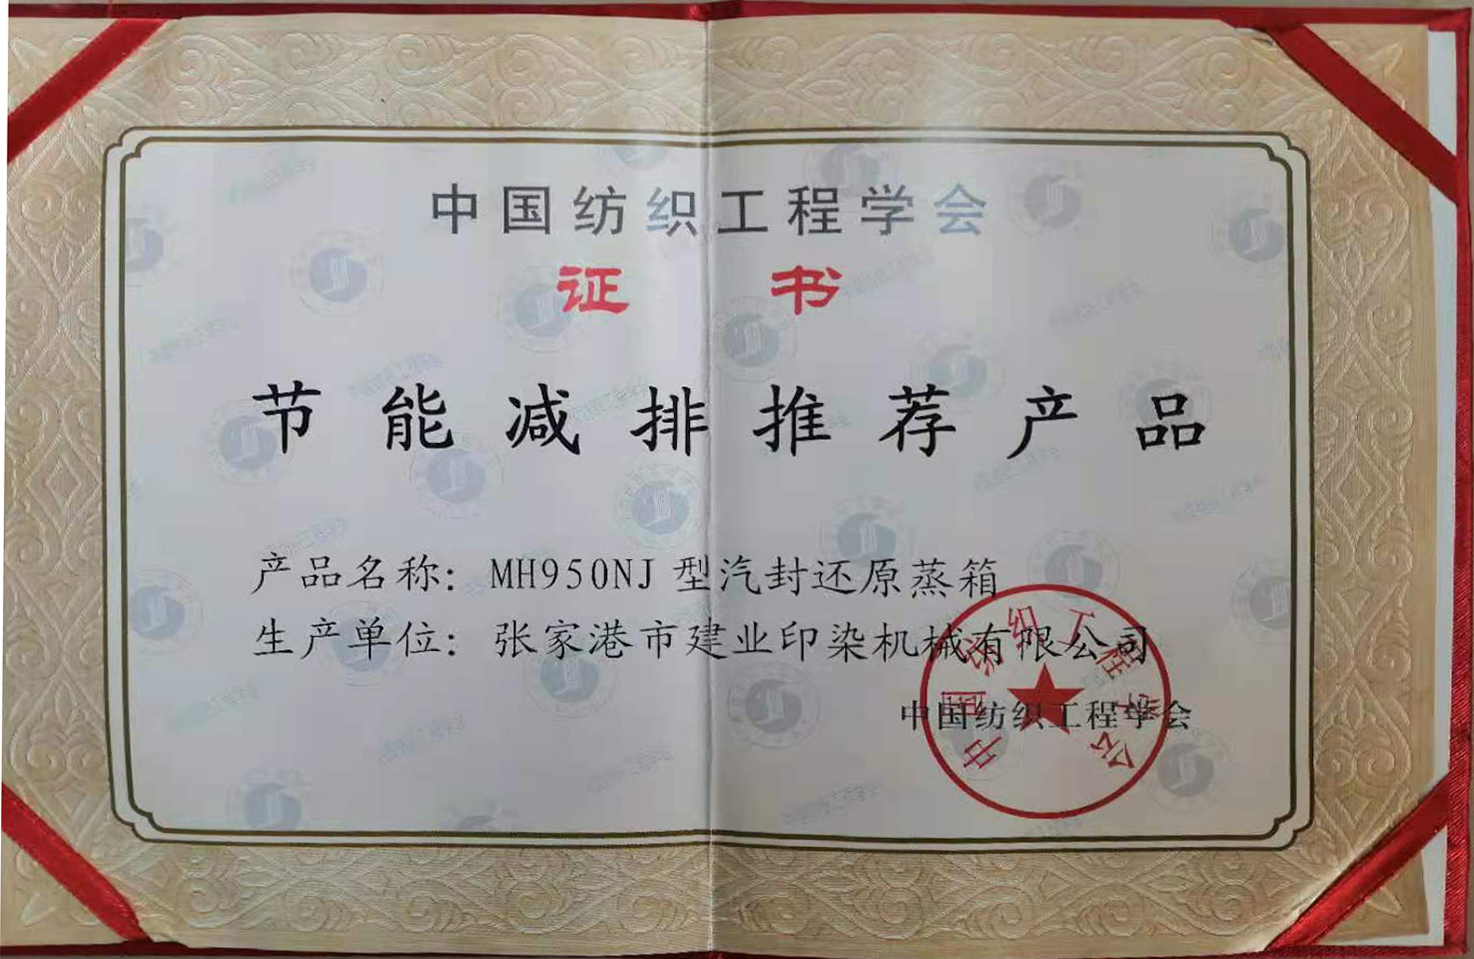 中国纺织工程学会
证书
节能减排推荐产品
产品名称：MH950NJ 型汽封还原蒸箱
生产单位：张家港市建业印染机械有限公司
中国纺织工程学会
中国纺织工程学会